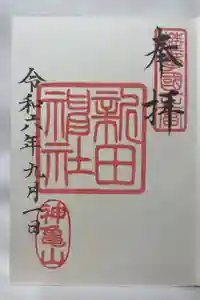 奉拝
新田神社
令和六年九月一日
神亀山